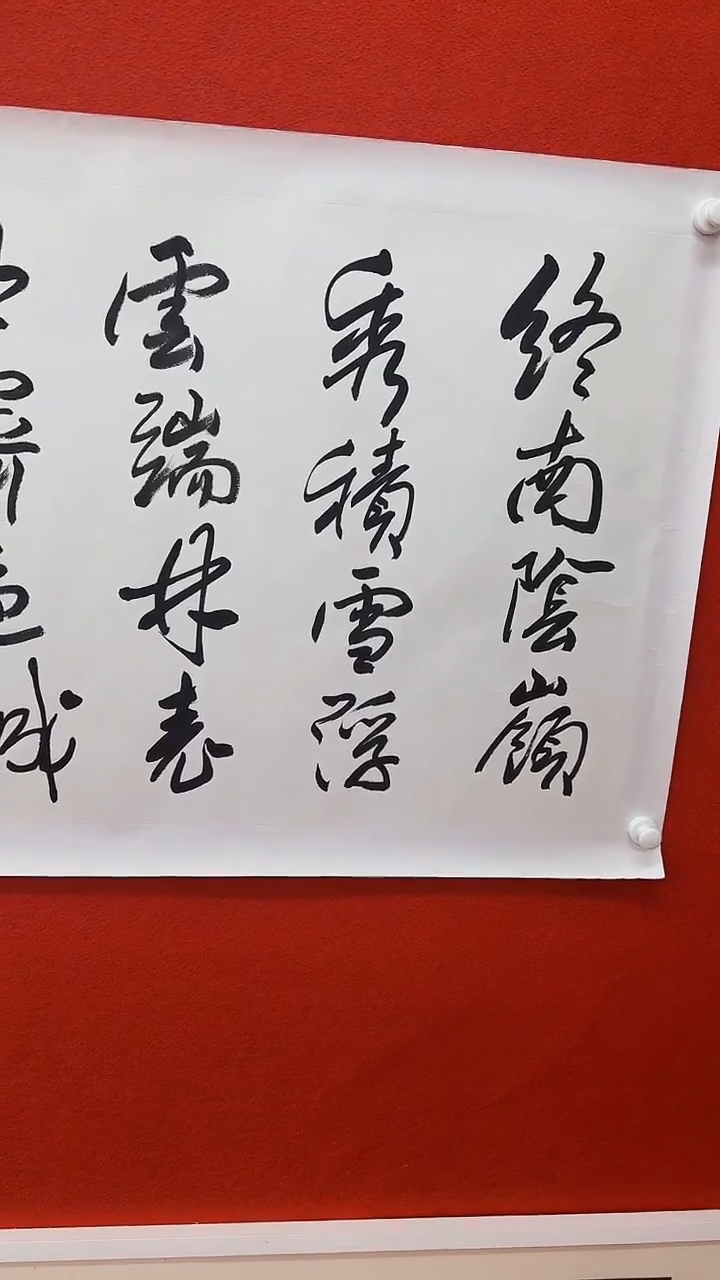 終南陰嶺
秀積雪浮
雲端林表
城